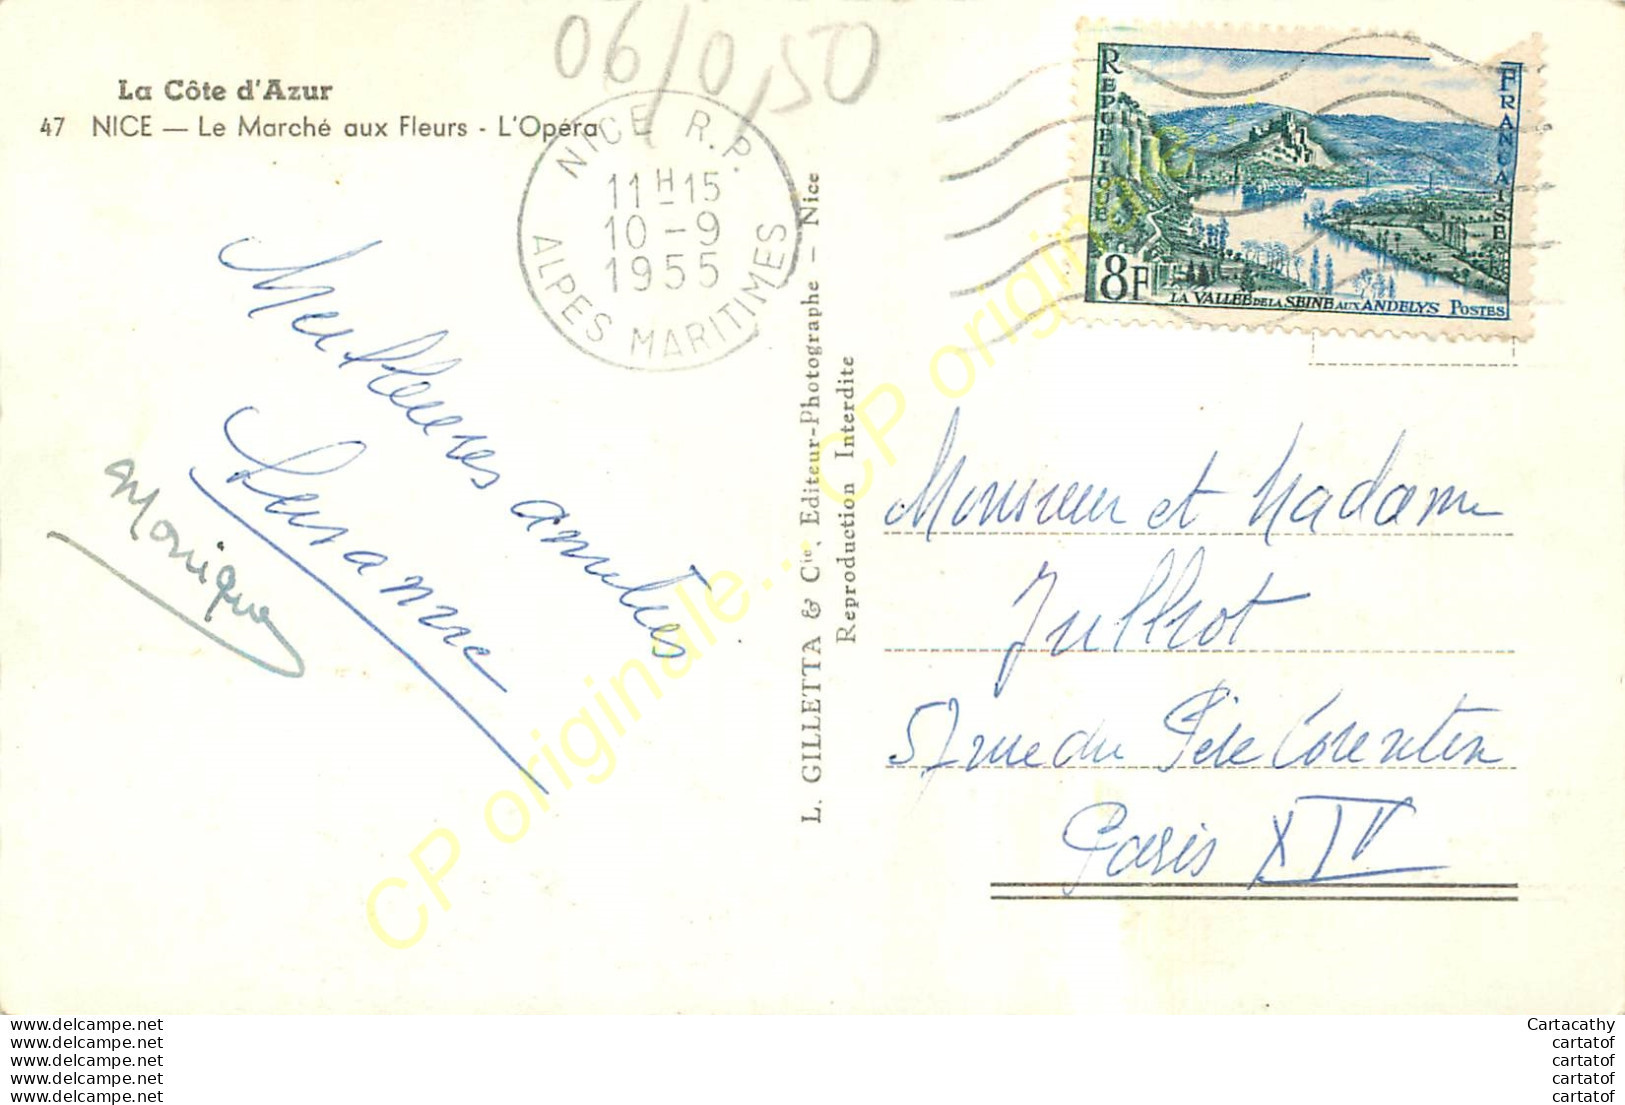 06/0,50
La Côte d'Azur
47 NICE — Le Marché aux Fleurs - L'Opéra
NICE R.P.
11 H 15
10 - 9
1955
ALPES MARITIMES
REPUBLIQUE FRANCAISE
8F
LA VALLEE DE LA SEINE AUX ANDELYS POSTES
Meilleures amitiés
Susanne
Monique
L. GILLETTA & Cie, Editeur-Photographe - Nice
Reproduction Interdite
Monsieur et Madame
Julliot
57 rue du Père Corentin
Paris XIV
CP originale... CP originale...
www.delcampe.net
www.delcampe.net
www.delcampe.net
www.delcampe.net
www.delcampe.net
Cartacathy
cartatof
cartatof
cartatof
cartatof